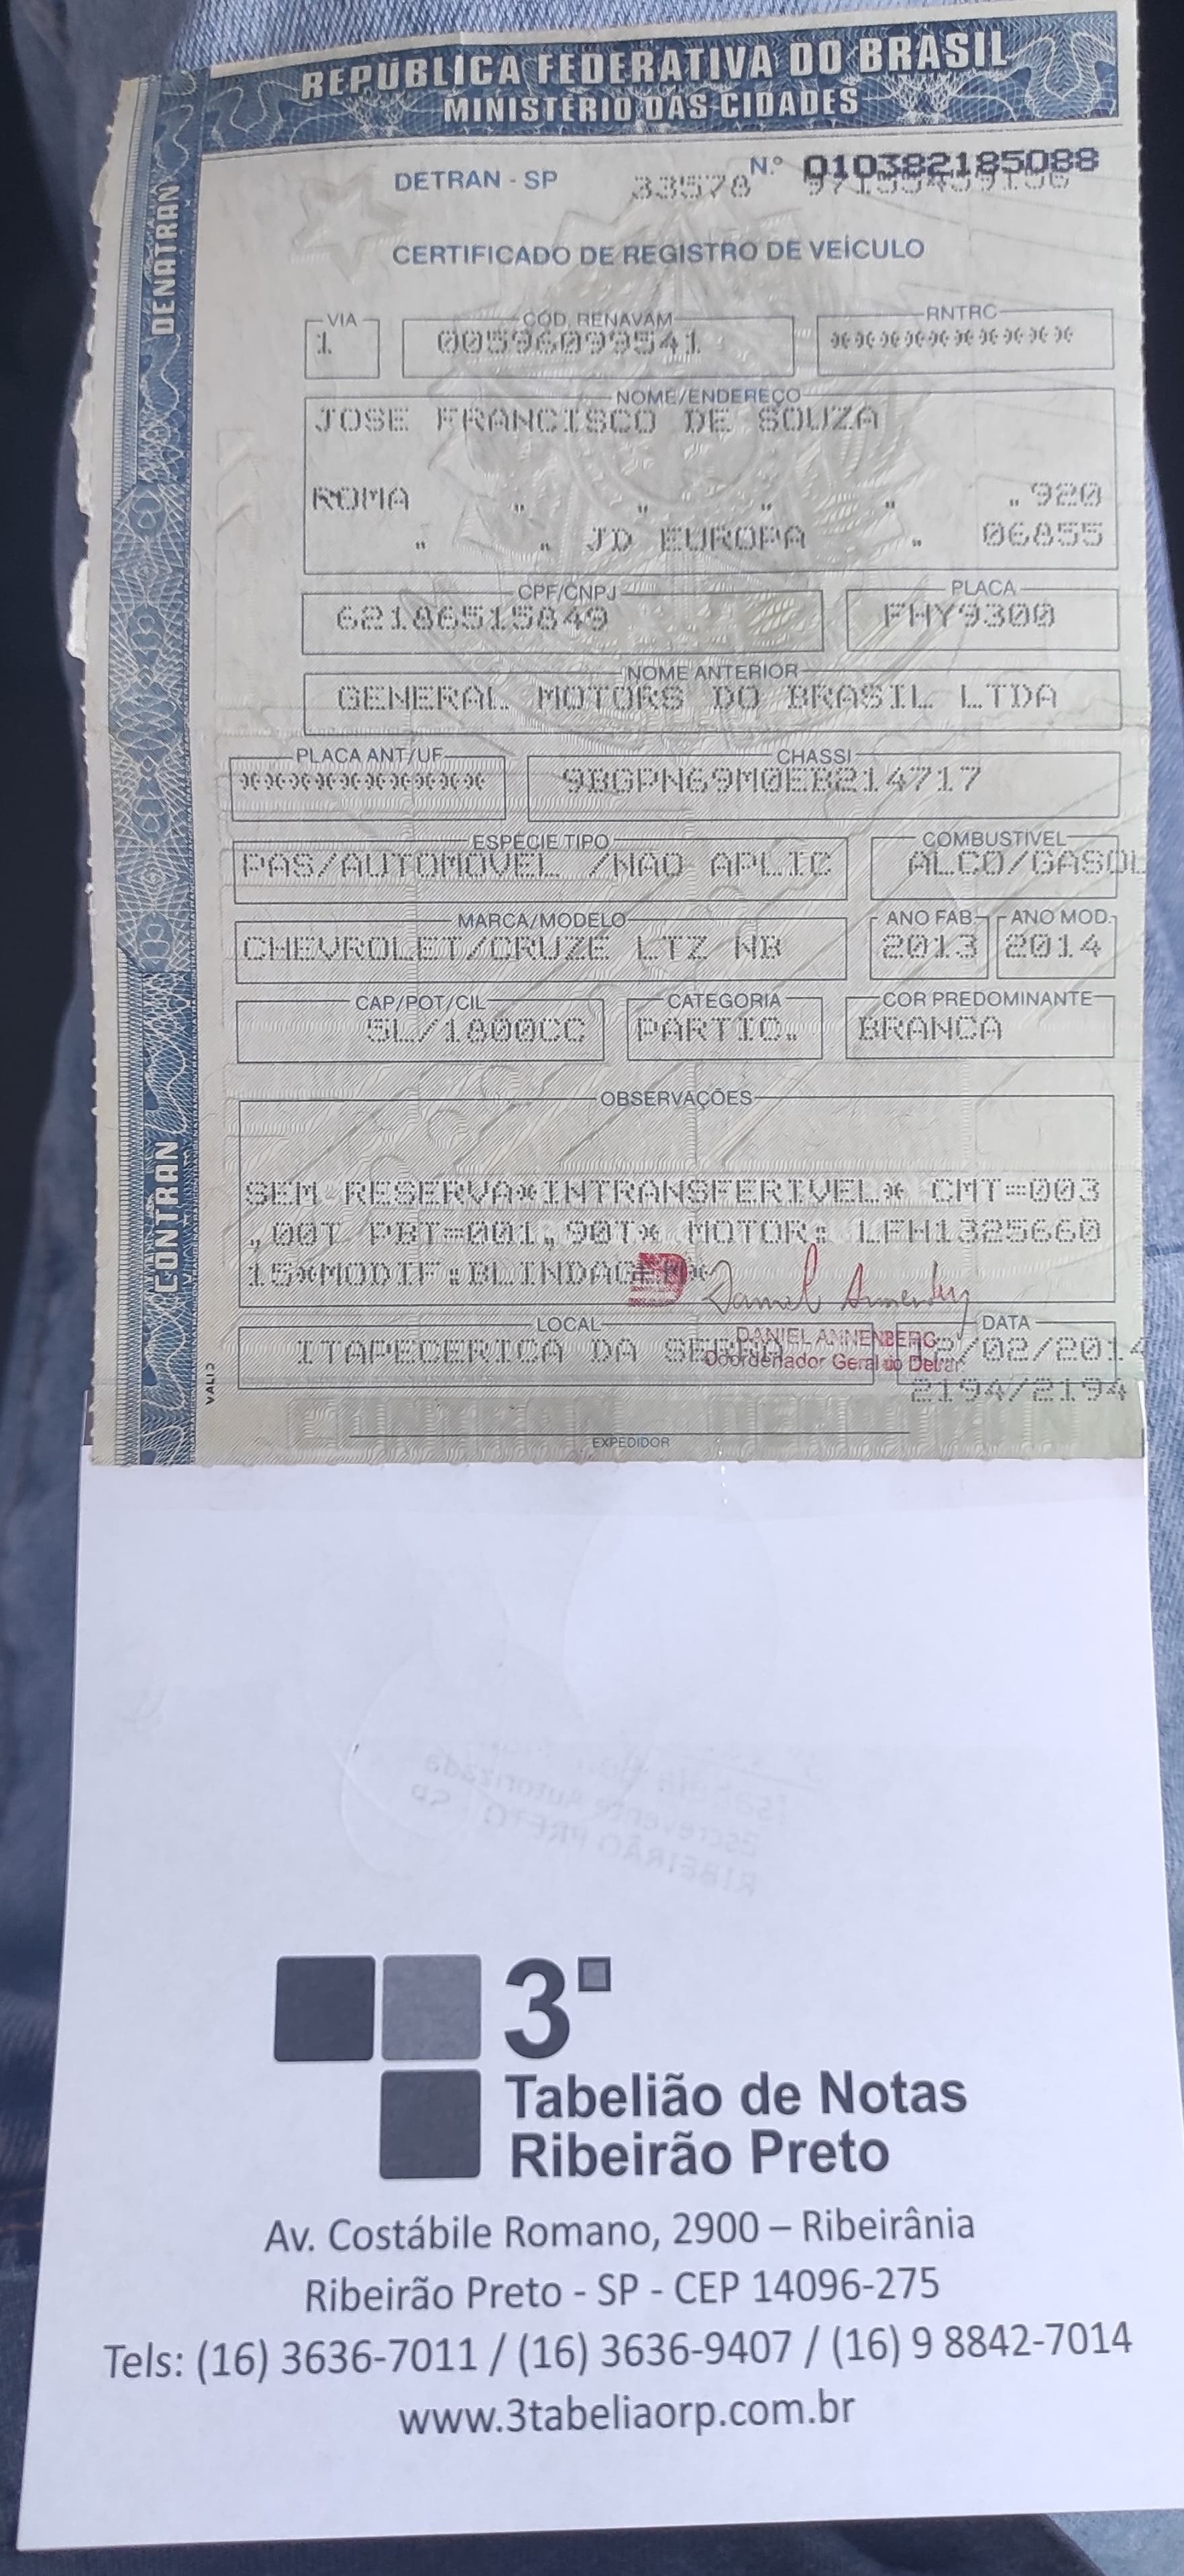 REPÚBLICA FEDERATIVA DO BRASIL
MINISTÉRIO DAS CIDADES
DENATRAN
CONTRAN
DETRAN - SP 33578 N.º 010382185088
CERTIFICADO DE REGISTRO DE VEÍCULO
VIA CÓD. RENAVAM RNTRC
1 00596099541 *************
NOME/ENDEREÇO
JOSE FRANCISCO DE SOUZA
ROMA " " " " .. 920
" " JD EUROPA " 06855
CPF/CNPJ PLACA
62186515849 FHY9300
NOME ANTERIOR
GENERAL MOTORS DO BRASIL LTDA
PLACA ANT/UF CHASSI
**************** 9BGPN69M0EB214717
ESPÉCIE TIPO COMBUSTÍVEL
PAS/AUTOMOVEL /NAO APLIC ALCO/GASOL
MARCA/MODELO ANO FAB. ANO MOD.
CHEVROLET/CRUZE LTZ NB 2013 2014
CAP/POT/CIL CATEGORIA COR PREDOMINANTE
5L/1800CC PARTIC. BRANCA
OBSERVAÇÕES
SEM RESERVA*INTRANSFERIVEL* CMT=003
,00T PBT=001,90T* MOTOR: LFH1325660
15*MODIF:BLINDAGEM*
LOCAL DATA
ITAPECERICA DA SERRA /02/2014
DANIEL ANNENBERG
Coordenador Geral do Detran
2194/2194
EXPEDIDOR
3º
Tabelião de Notas
Ribeirão Preto
Av. Costábile Romano, 2900 – Ribeirânia
Ribeirão Preto - SP - CEP 14096-275
Tels: (16) 3636-7011 / (16) 3636-9407 / (16) 9 8842-7014
www.3tabeliaorp.com.br